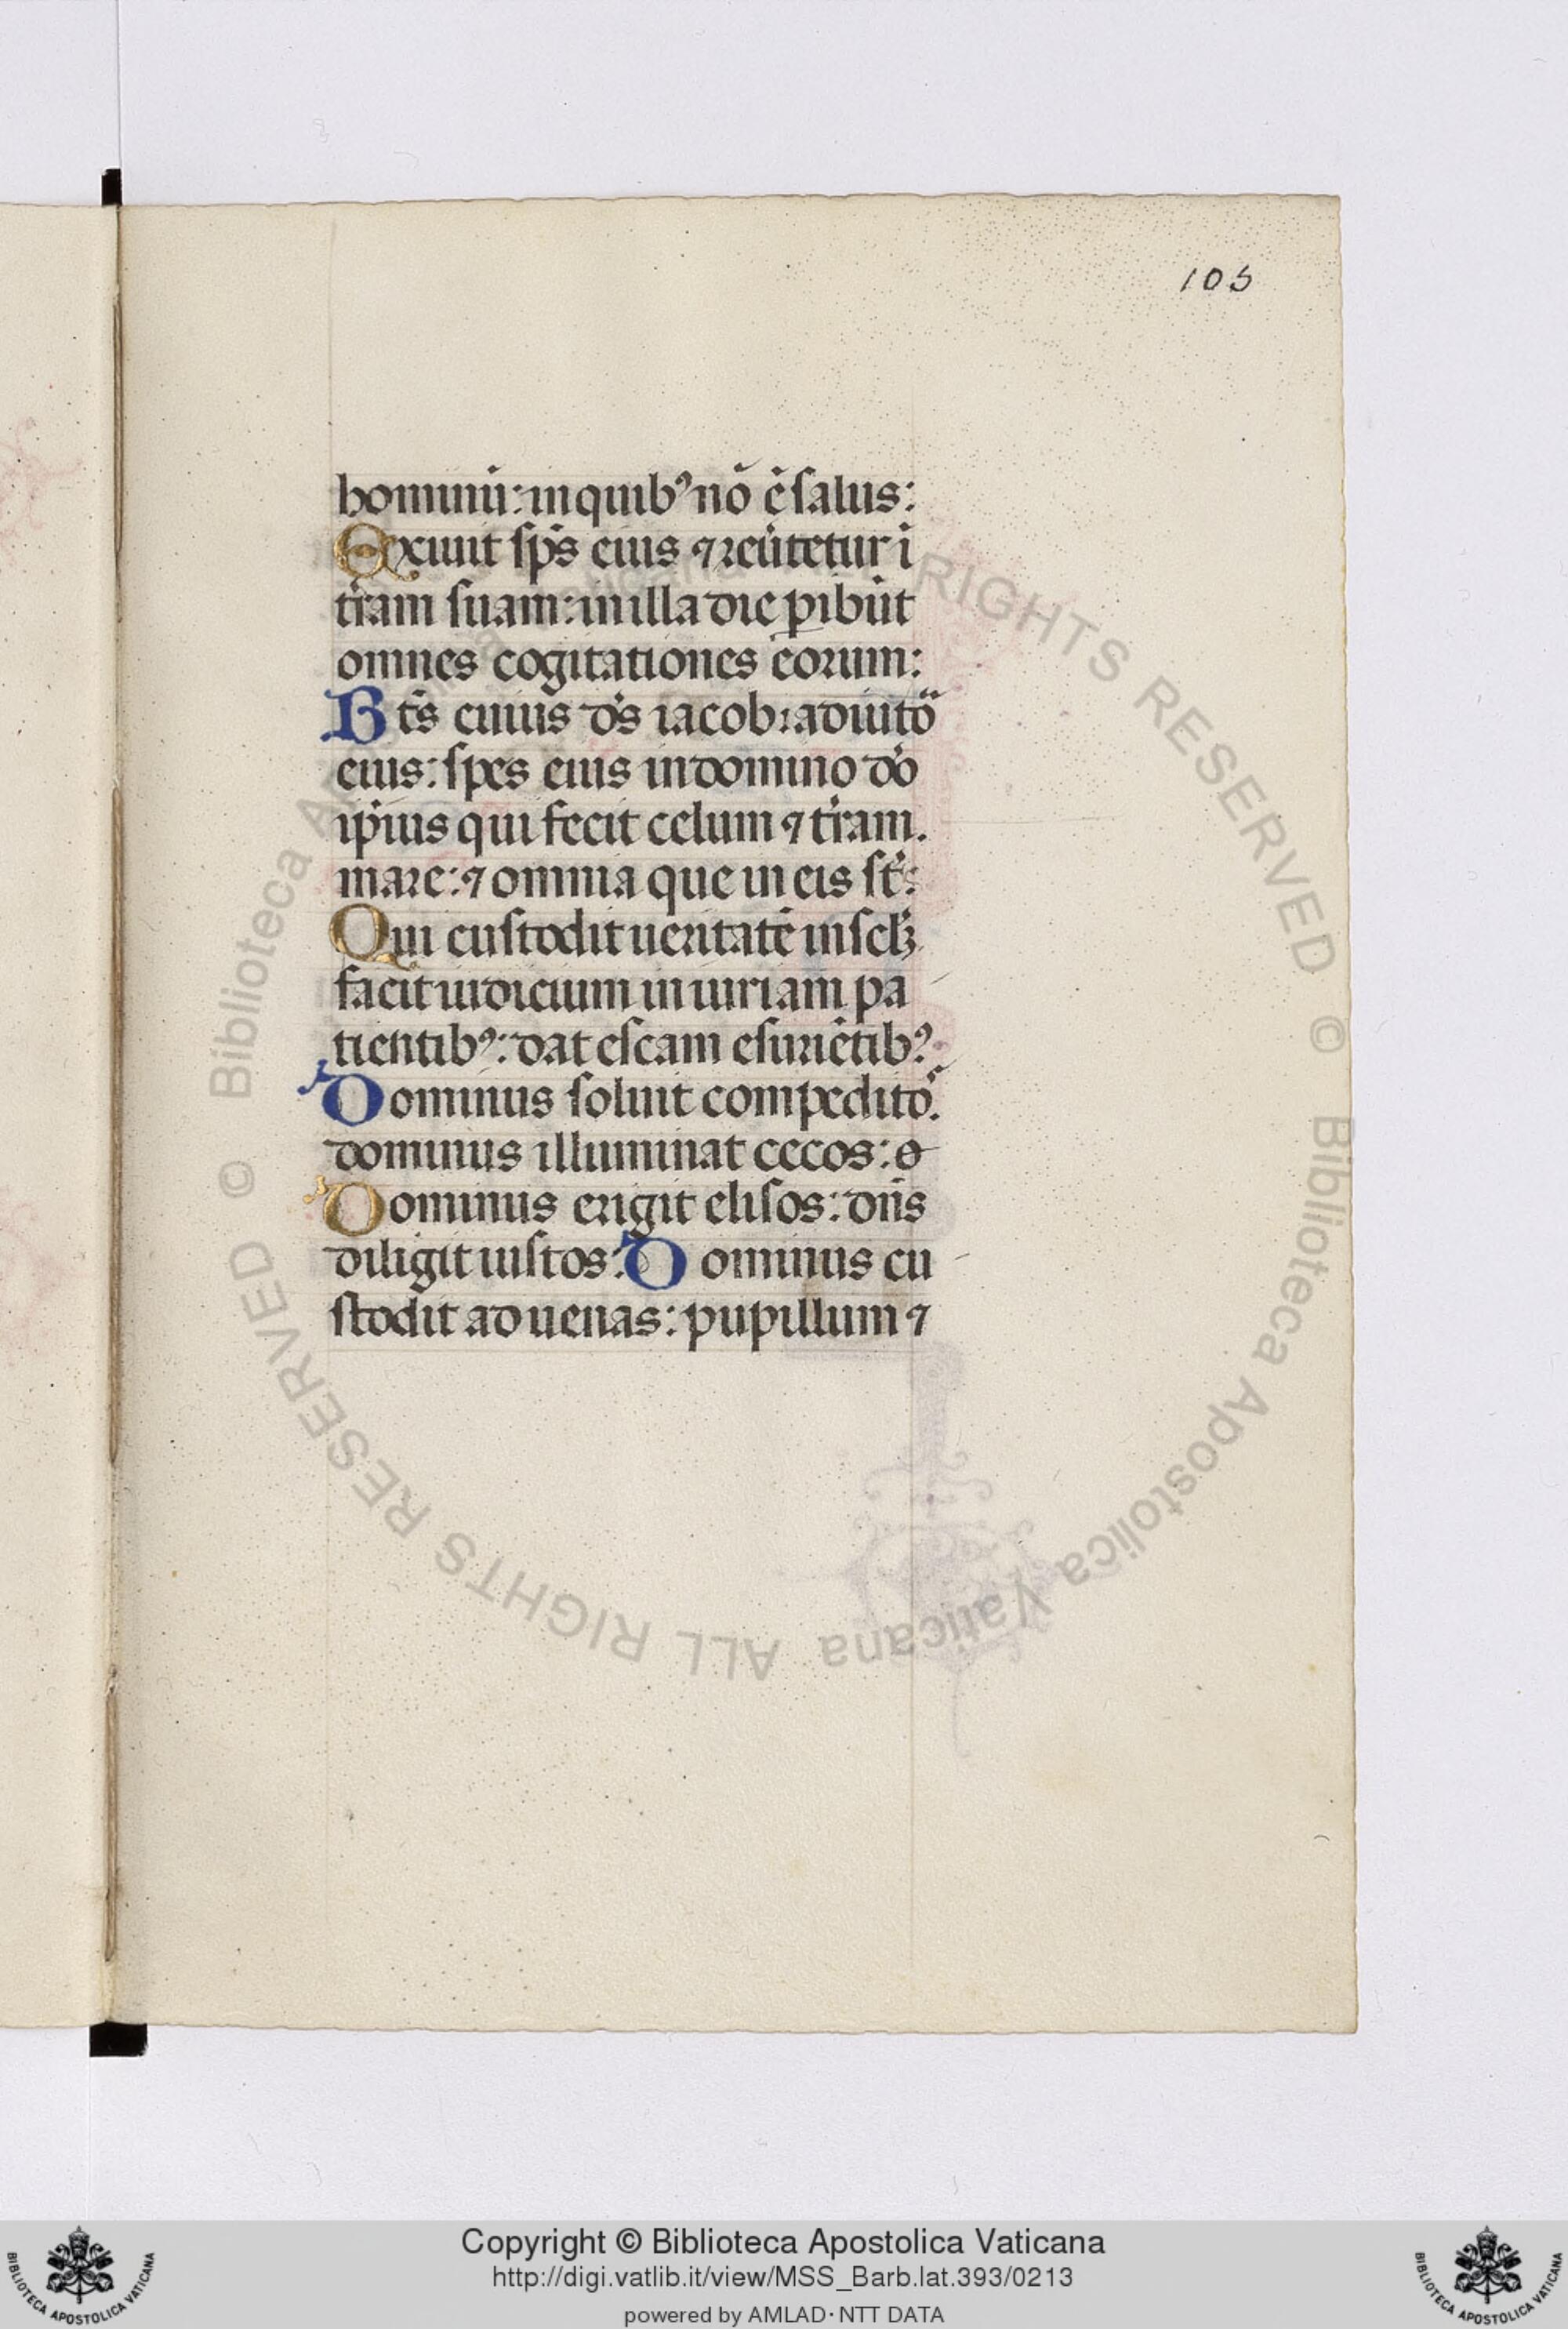 105
hominū: in quib⁹ nō ē salus:
Exiuit sps̄ eius ⁊ reūtetur ī
tr̄am suam: in illa die ꝑibūt
omnes cogitationes eorum:
Bt̄s cuius ds̄ iacob: adiutõ
eius: spes eius in domino dō
ip̄ius qui fecit celum ⁊ tr̄am.
mare: ⁊ omnia que in eis st̄:
Qui custodit ueritatē in sclꝫ
facit iudicium iniuriam pa
tientib⁹: dat escam esuriētib⁹:
Dominus soluit compeditõ.
dominus illuminat cecos: o
Dominus erigit elisos: dn̄s
diligit iustos: Dominus cu
stodit aduenas: pupillum ⁊
© Biblioteca Apostolica Vaticana ALL RIGHTS RESERVED
© Biblioteca Apostolica Vaticana ALL RIGHTS RESERVED
BIBLIOTECA APOSTOLICA VATICANA
Copyright © Biblioteca Apostolica Vaticana
http://digi.vatlib.it/view/MSS_Barb.lat.393/0213
powered by AMLAD · NTT DATA
BIBLIOTECA APOSTOLICA VATICANA